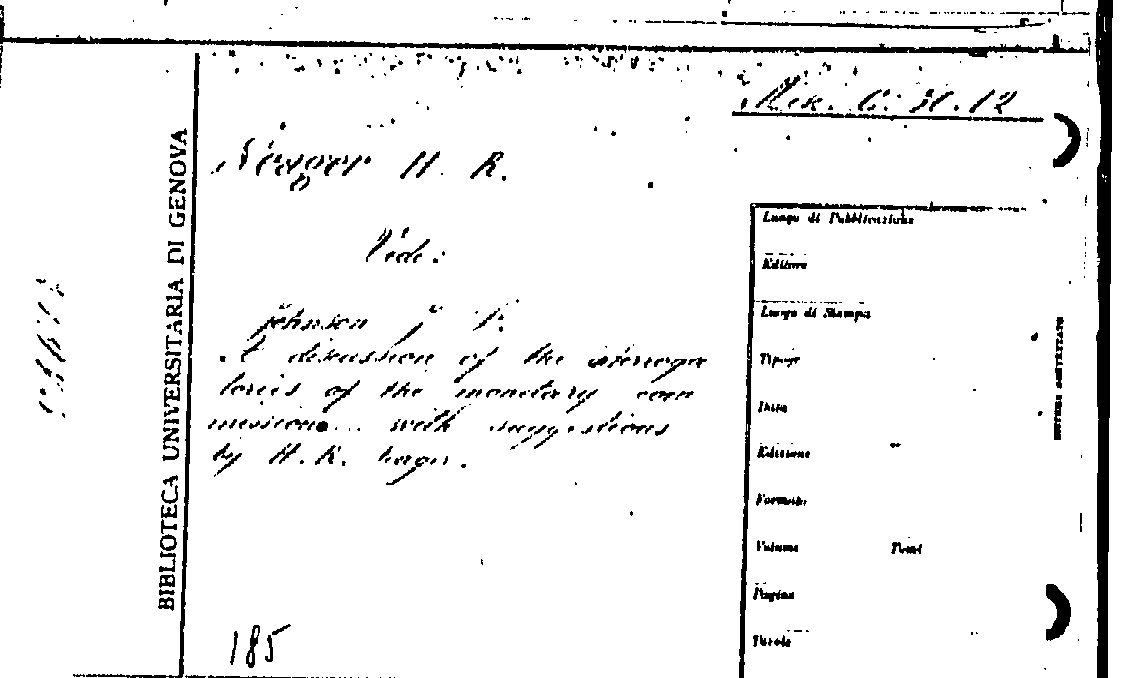 C. 31.12
H. R.
Vede:
Johnson J. F.
A discussion of the interroga
tories of the monetary com
mission... with suggestions
by H. R.
185
BIBLIOTECA UNIVERSITARIA DI GENOVA
Luogo di Pubblicazione
Editore
Luogo di Stampa
Tipogr.
Data
Edizione
Formato
Volume Tomi
Pagine
Tavole